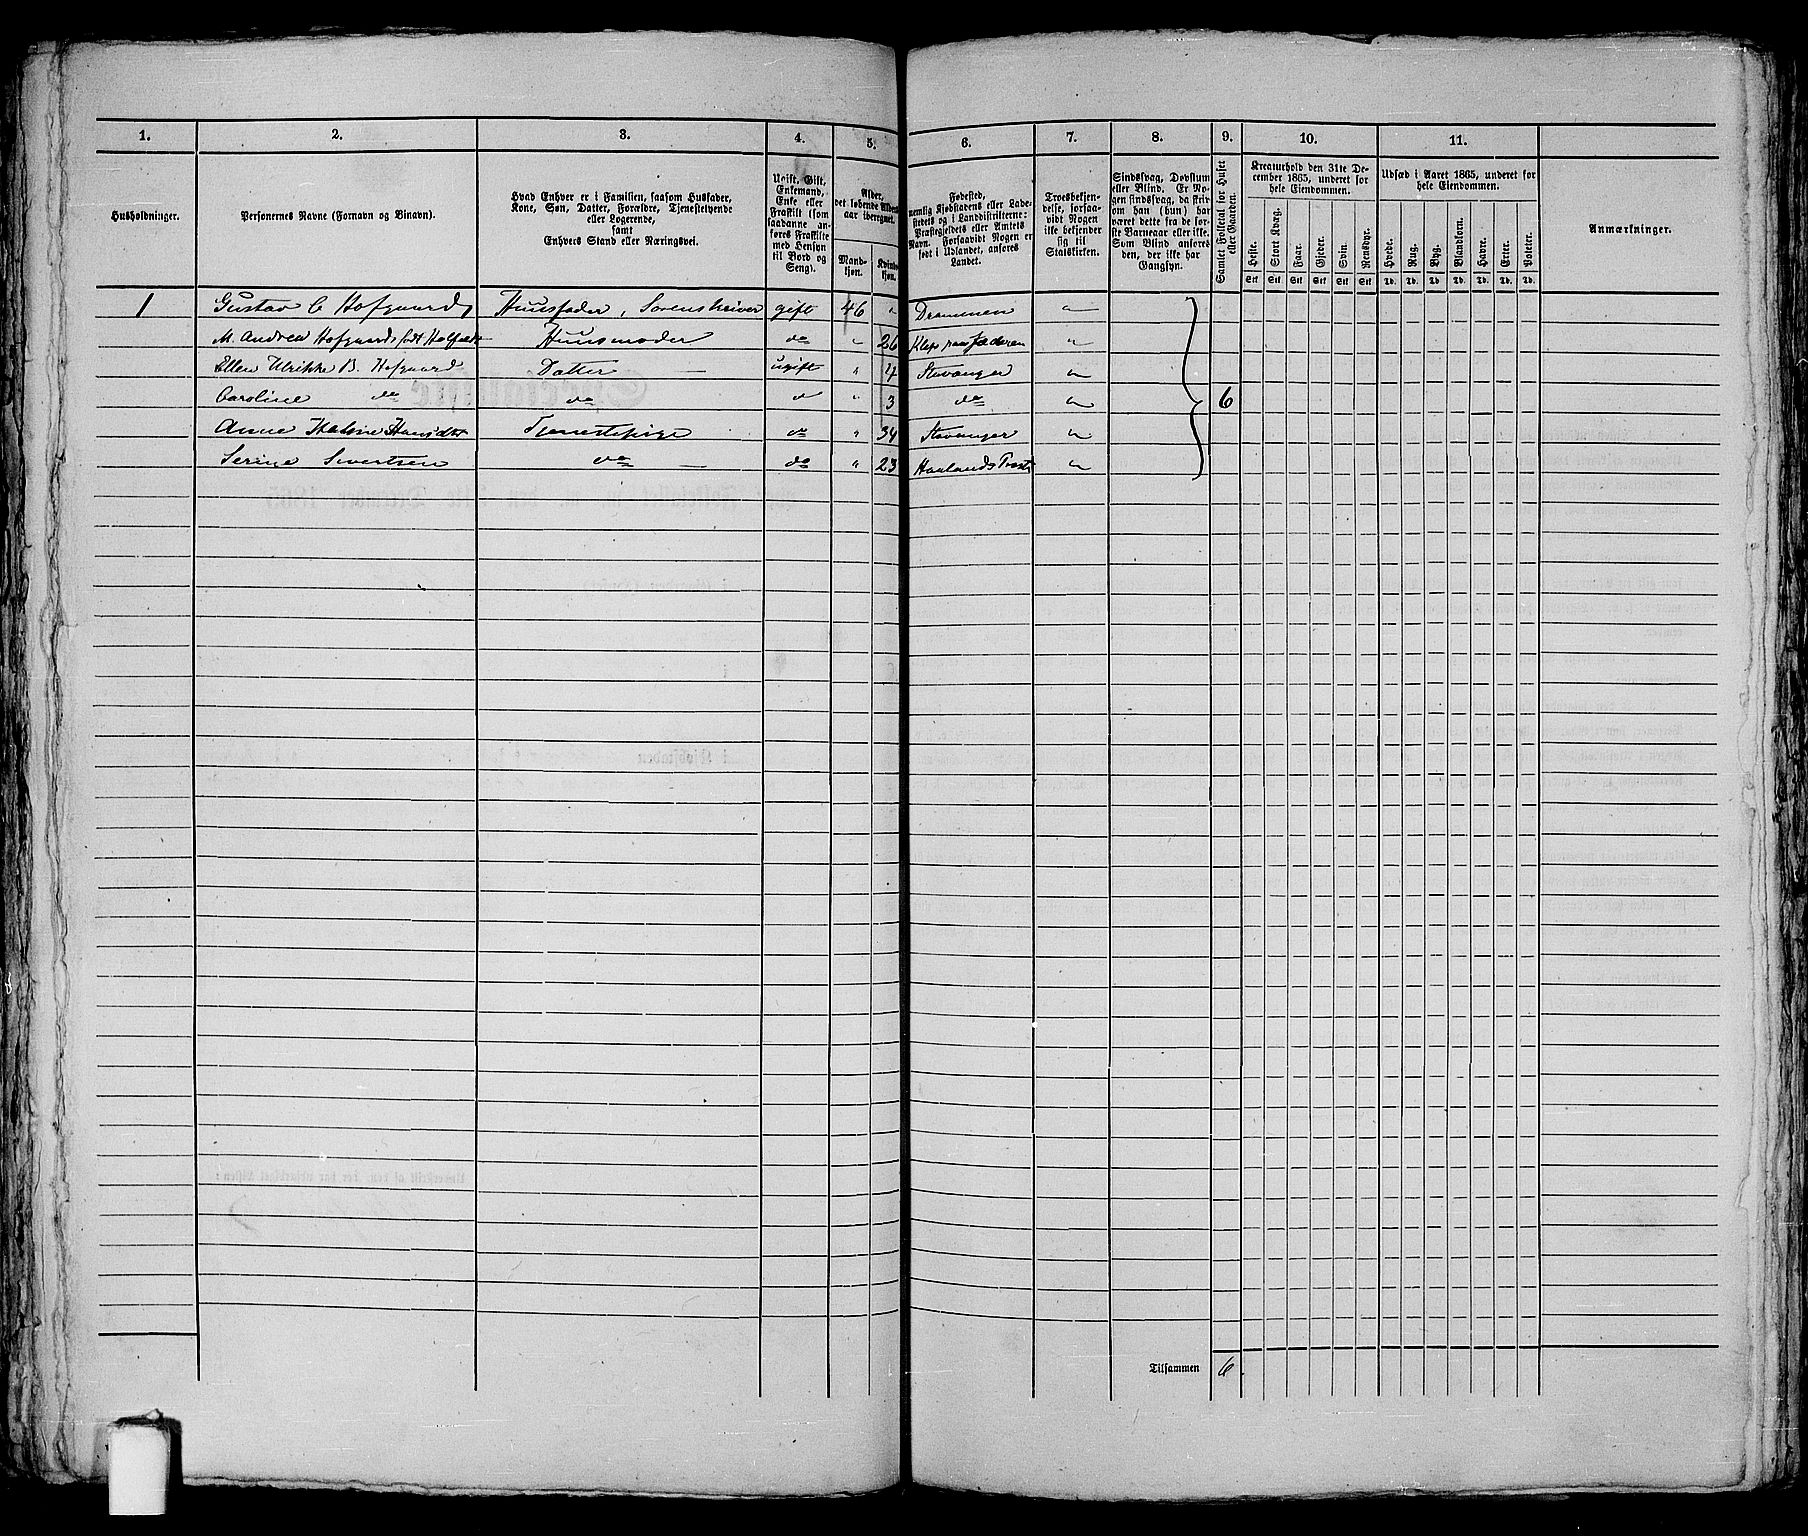 1. 2. 3. 4. 5. 6. 7. 8. 9. 10. 11.
Husholdninger.
Personernes Navne (Fornavn og Binavn).
Hvad Enhver er i Familien, saasom Husfader,
Kone, Søn, Datter, Forældre, Tjenestetyende
eller Logerende,
samt
Enhvers Stand eller Næringsvei.
Ugift, Gift,
Enkemand,
Enke eller
Fraskilt (som
saadanne an-
føres Fraskilte
med Hensyn
til Bord og
Seng).
Alder,
det løbende Alders-
aar iberegnet.
Mand-
kjøn.
Kvinde-
kjøn.
Fødested,
nemlig Kjøbstadens eller Lade-
stedets og i Landdistrikterne:
Præstegjeldets eller Amtets
Navn. Forsaavidt Nogen er
født i Udlandet, anføres
Landet.
Troesbekjen-
delse, forsaa-
vidt Nogen
ikke bekjender
sig til
Statskirken.
Sindssvag, Døvstum
eller Blind. Er No-
gen sindssvag, da skriv
om han (hun) har
været dette fra de før-
ste Barneaar eller ikke.
Som Blind anføres
den, der ikke har
Gangsyn.
Samlet Folketal for Huset
eller Gaarden.
Kreaturhold den 31te De-
cember 1865, underet for
hele Eiendommen.
Heste. Stort Kvæg. Faar. Gjeder. Svin. Rensdyr.
Stk Stk Stk Stk Stk Stk
Udsæd i Aaret 1865, underet for
hele Eiendommen.
Hvede. Rug. Byg. Blandkorn. Havre. Erter. Poteter.
Td. Td. Td. Td. Td. Td. Td.
Anmærkninger.
1 Gustav C Hofgaard Huusfader, Sorenskriver gift 46 " Drammen "
M. Andrea Hofgaard født Huusmoder do " 26 Klep Jæderen "
Ellen Ulrikke B. Hofgaard Datter ugift " 4 Stavanger "
Caroline do do " " 3 do " 6
Anne Hansdtr Tjenestepige do " 34 Stavanger "
Serine Sivertsen do do " 23 Haalands Præst "
Tilsammen 6